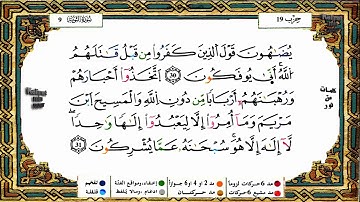 سورة التوبة 9
حزب 19
يُضَٰهِـُٔونَ قَوْلَ ٱلَّذِينَ كَفَرُوا۟ مِن قَبْلُ قَٰتَلَهُمُ
ٱللَّهُ أَنَّىٰ يُؤْفَكُونَ ٣٠ ٱتَّخَذُوٓا۟ أَحْبَارَهُمْ
وَرُهْبَٰنَهُمْ أَرْبَابًا مِّن دُونِ ٱللَّهِ وَٱلْمَسِيحَ ٱبْنَ
مَرْيَمَ وَمَآ أُمِرُوٓا۟ إِلَّا لِيَعْبُدُوٓا۟ إِلَٰهًا وَٰحِدًا
لَّآ إِلَٰهَ إِلَّا هُوَ سُبْحَٰنَهُۥ عَمَّا يُشْرِكُونَ ٣١
كلمات من نور
مد 6 حركات لزوماً
مد 2 أو 4 أو 6 جوازاً
إخفاء، ومواقع الغنة
تفخيم
مد مشبع 6 حركات
مد حركتان
إدغام، وما لا يلفظ
قلقلة